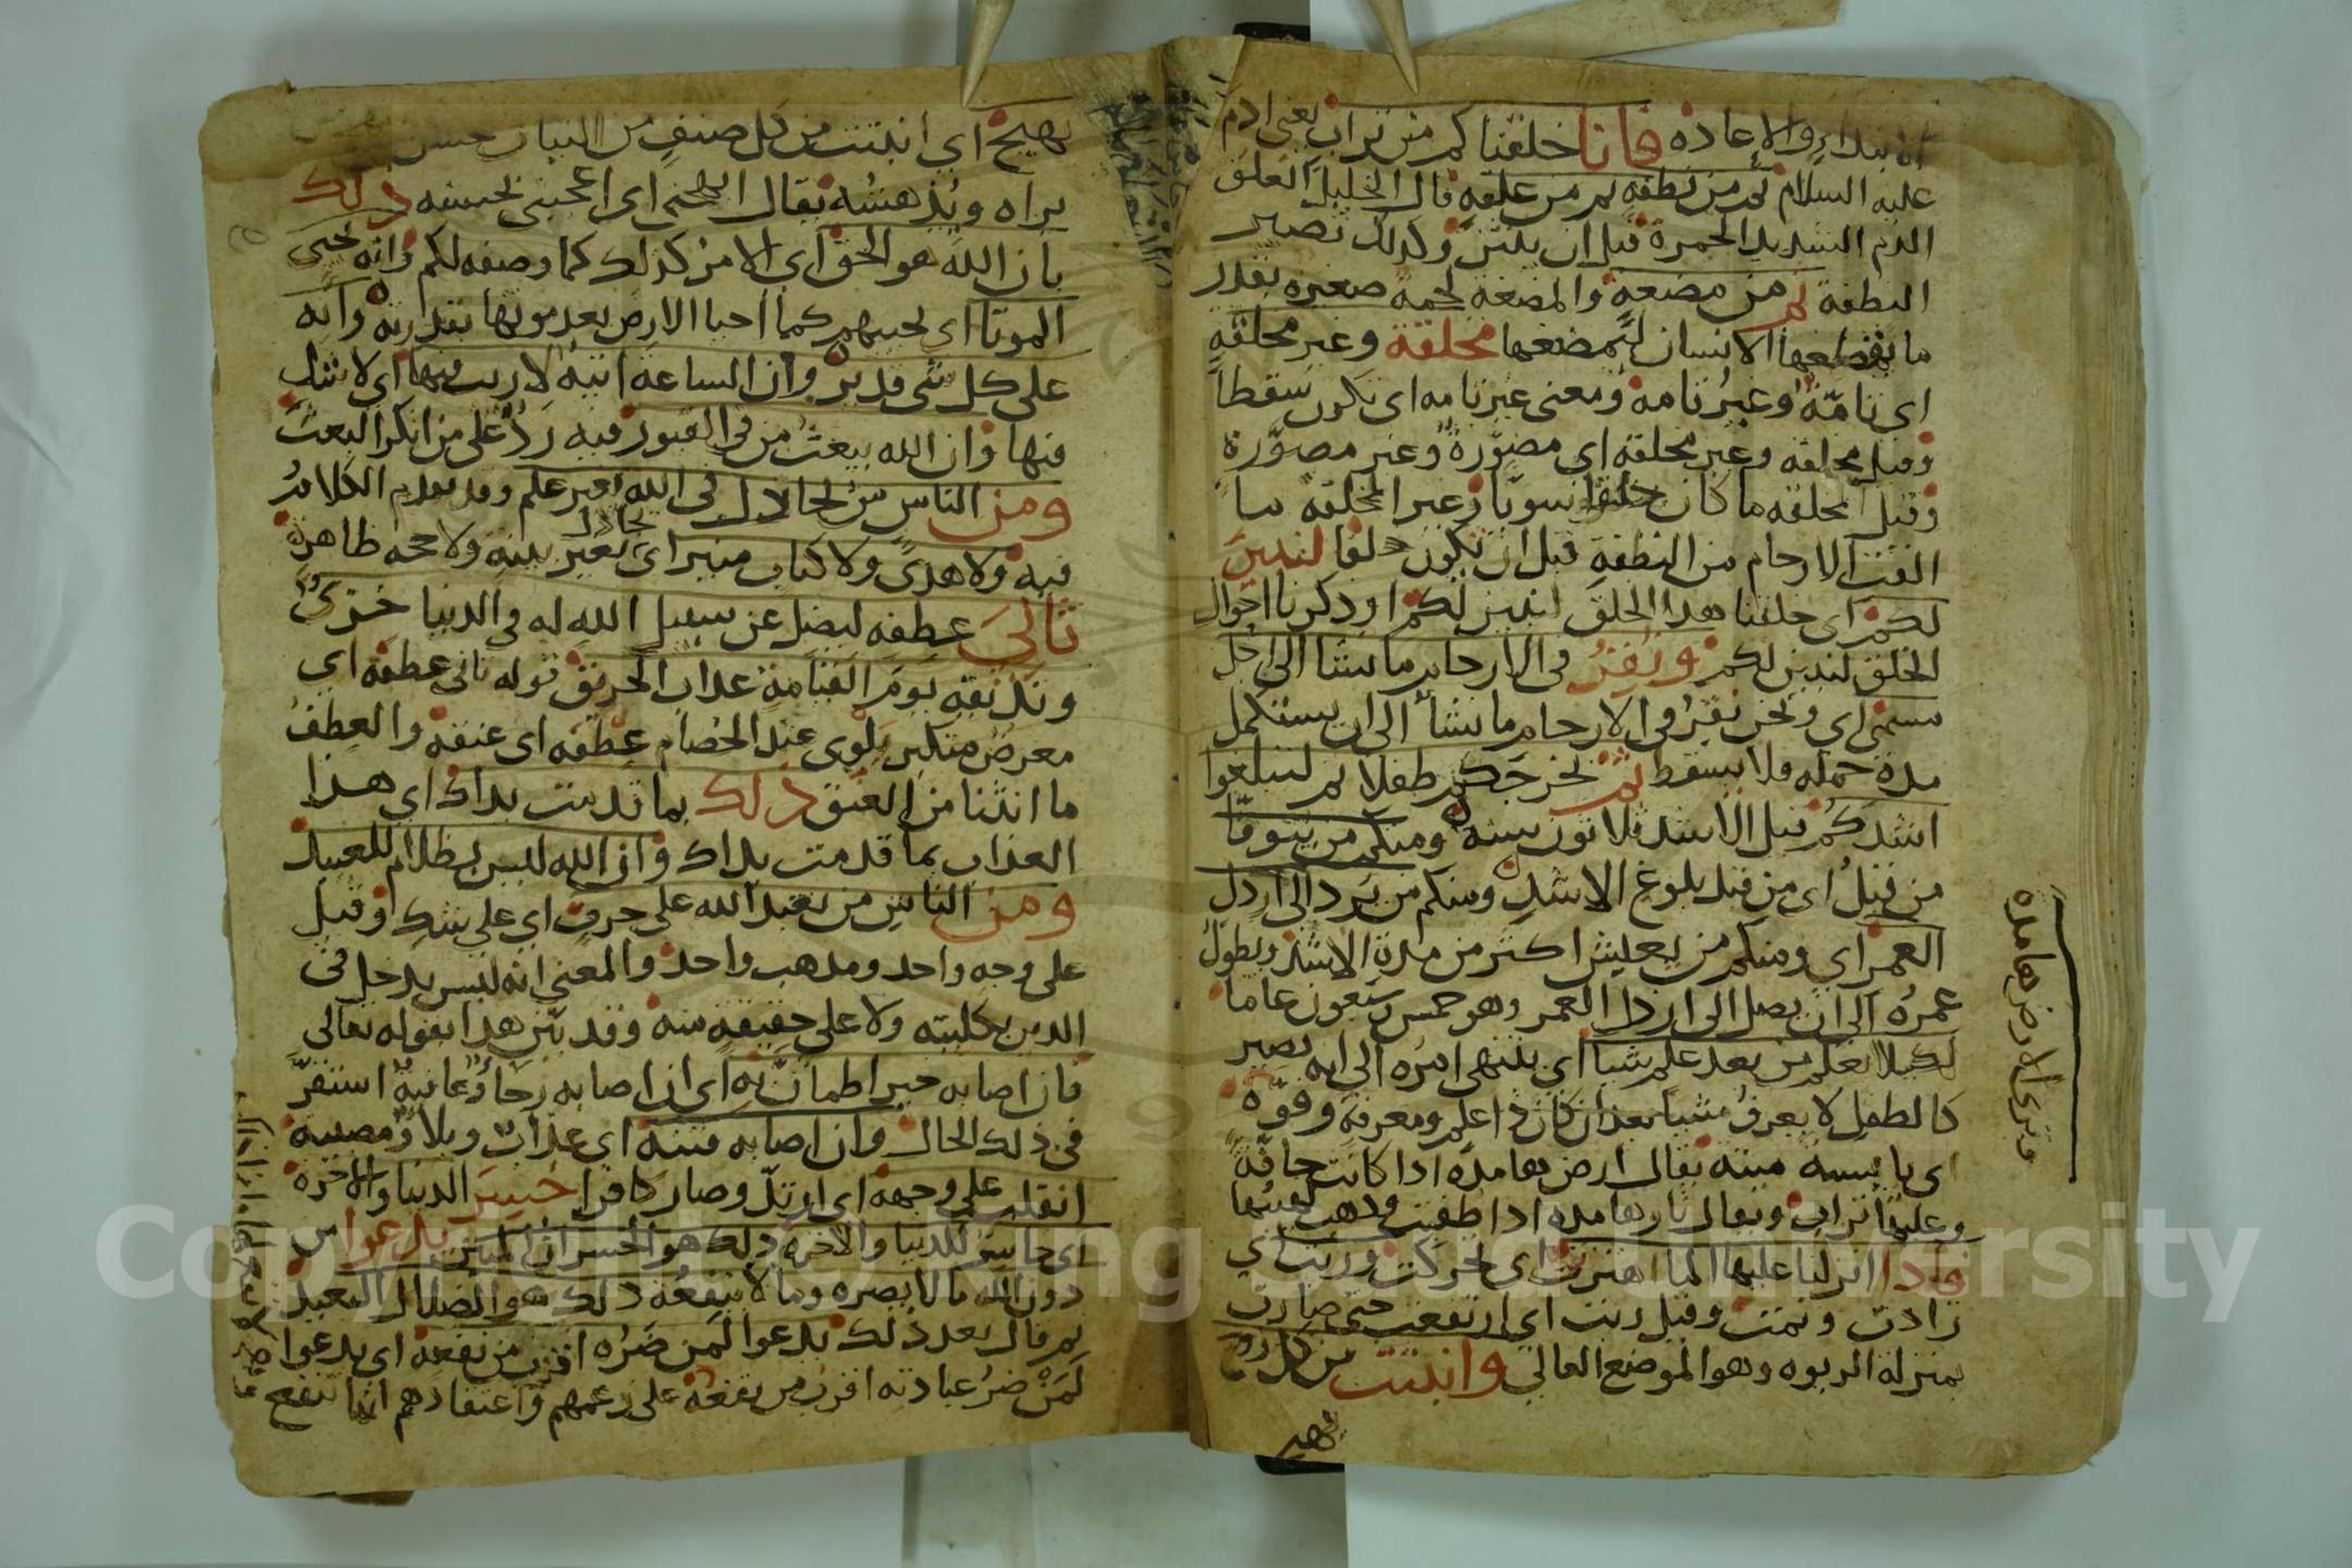 الابتداء والاعاده فانا خلقناكم من تراب يعنى ادم
عليه السلام ثم من نطفه ثم من علقه قال الخليل العلق
الدم الشديد الحمرة قبل ان ييبس وكذلك تصير
النطفة ثم من مضغه والمضغه لحمة صغيره بقدر
ما يقطعها الانسان ليمضغها مخلقة وغير مخلقه
اى تامّة وغير تامه ومعنى غير تامه اى تكون سقطا
وقيل مخلقه وغير مخلقه اى مصوّرة وغير مصوّرة
وقيل مخلقه ما كان خلقا سويا وغير المخلقة ما
القت الارحام من النطفه قبل ان تكون خلقا لنبين
لكم اى خلقنا هذا الخلق لنبين لكم او ذكرنا احوال
الخلق لنبين لكم ونقر فى الارحام ما نشا الى اجل
مسمى اى ونحن نقر فى الارحام ما نشا الى ان يستكمل
مدة حمله ولا يسقط ثم نخرجكم طفلا ثم لتبلغوا
اشدكم قيل الاشد ثلاثون سنه ومنكم من يتوفا
من قبل اى من قبل بلوغ الاشد ومنكم من يرد الى ارذل
العمر اى ومنكم من يعيش اكثر من مدة الاشد ويطول
عمره الى ان يصل الى ارذل العمر وهو خمس وسبعون عاما
لكيلا يعلم من بعد علم شيا اى ينتهى امره الى انه يصير
كالطفل لا يعرف شيا بعد ان كان ذا علم ومعرفه وقوّة
وترى الارض هامده
اى يابسة ميته يقال ارض هامدة اذا كانت جافّة
وعليها تراب ويقال نار هامده اذا طفيت وذهب لهبها
فاذا انزلنا عليها الما اهتزت اى تحركت وربت اى
زادت ونمت وقيل ربت اى ارتفعت حتى صارت
بمنزلة الربوه وهو الموضع العالى وانبتت من كل زوج
بهيج
بهيج اى انبتت من كل صنف من النبات حسن
يراه ويُدهشه يقال ابهجنى اى اعجبنى بحسنه ذلك
بان الله هو الحق اى الامر كذلك كما وصفه لكم وانه يحيى
الموتا اى يحييهم كما احيا الارض بعد موتها بقدرته وانه
على كل شى قدير وان الساعة اتيه لا ريب فيها اى لا شك
فيها وان الله يبعث من فى القبور فيه ردّ على من انكر البعث
ومن الناس من يجادل فى الله بغير علم وقد تقدم الكلام
فيه ولا هدى ولا كتاب منير اى يجادل بغير بينه ولا حجه ظاهرة
ثانى عطفه ليضل عن سبيل الله له فى الدنيا خزى
ونذيقه يوم القيامة عذاب الحريق قوله ثانى عطفه اى
معرض متكبر يلوى عند الخصام عطفه اى عنقه والعطف
ما انثنا من العنق ذلك بما قدمت يداك اى هذا
العذاب بما قدمت يداك وان الله ليس بظلام للعبيد
ومن الناس من يعبد الله على حرف اى على شك وقيل
على وجه واحد ومذهب واحد والمعنى انه ليس يدخل فى
الدين بكليته ولا على حقيقه منه وقد بيّن هذا بقوله تعالى
فان اصابه خير اطمأنّ به اى ان اصابه رخاء وعافية استقرّ
فى ذلك الحال وان اصابه فتنة اى عذاب وبلا ومصيبة
انقلب على وجهه اى ارتدّ وصار كافرا خسر الدنيا والاخرة
اى خاسر للدنيا والاخره ذلك هو الخسران المبين يدعوا من
دون الله ما لا يضره وما لا ينفعه ذلك هو الضلال البعيد
ثم قال بعد ذلك يدعوا لمن ضره اقرب من نفعه اى يدعوا
لمن ضر عبادته اقرب من نفعه على زعمهم واعتقادهم انها تنفع
Copyright © King Saud University